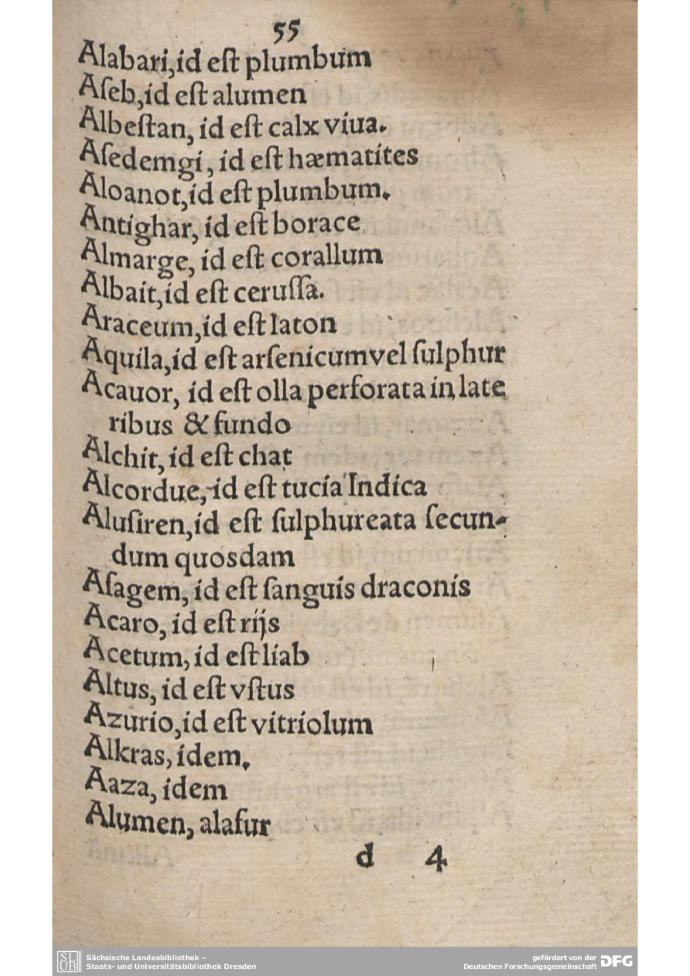 55
Alabari,id eſt plumbum
Aſeb,id eſt alumen
Albeſtan, id eſt calx viua.
Aſedemgi, id eſt hæmatites
Aloanot,id eſt plumbum.
Antighar, id eſt borace
Almarge, id eſt corallum
Albait,id eſt ceruſſa.
Araceum,id eſt laton
Aquila,id eſt arſenicumvel ſulphur
Acauor, id eſt olla perforata in late
ribus & fundo
Alchit, id eſt chat
Alcordue, id eſt tucia Indica
Aluſiren,id eſt ſulphureata ſecun-
dum quosdam
Aſagem, id eſt ſanguis draconis
Acaro, id eſt rijs
Acetum, id eſt liab
Altus, id eſt vſtus
Azurio,id eſt vitriolum
Alkras, idem.
Aaza, idem
Alumen, alafur
d 4
SLUB
Sächsische Landesbibliothek –
Staats- und Universitätsbibliothek Dresden
gefördert von der
Deutschen Forschungsgemeinschaft DFG